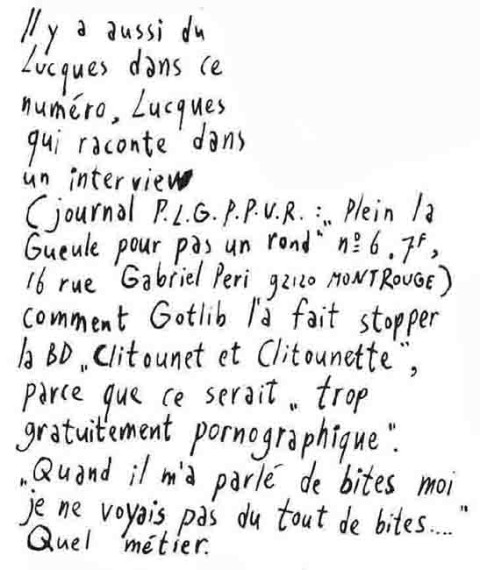 Il y a aussi du
Lucques dans ce
numéro, Lucques
qui raconte dans
un interview
(journal P.L.G.P.P.V.R. : „ Plein la
Gueule pour pas un rond" nº 6, 7F,
16 rue Gabriel Peri 92120 MONTROUGE)
comment Gotlib l'a fait stopper
la BD „Clitounet et Clitounette",
parce que ce serait „ trop
gratuitement pornographique".
„Quand il m'a parlé de bites moi
je ne voyais pas du tout de bites...."
Quel métier.